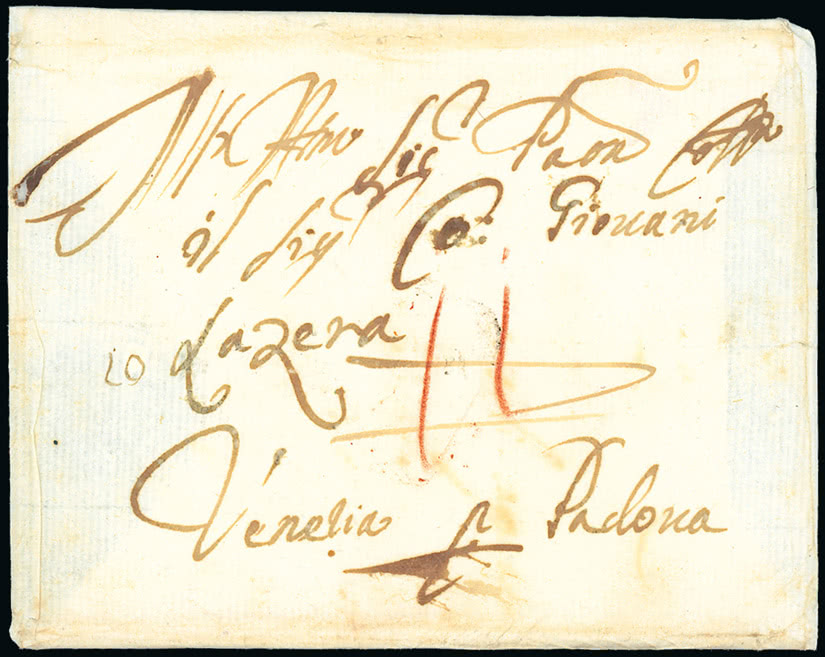 Ill Ssmo Sigr Paon Colmo
il Sigr Co: Giouani
Lazera
LO
Venetia p Padoua